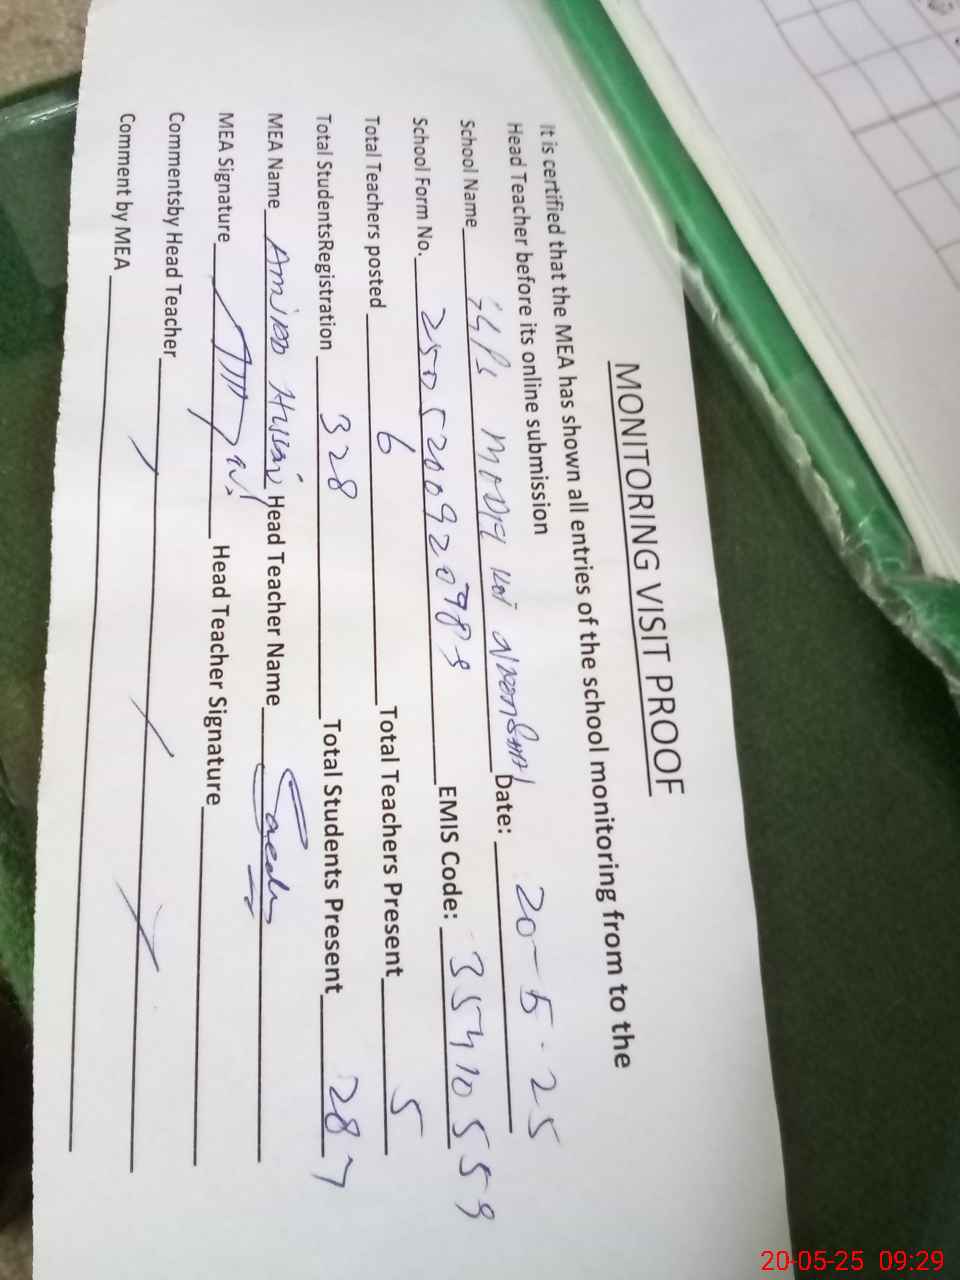 MONITORING VISIT PROOF
It is certified that the MEA has shown all entries of the school monitoring from to the
Head Teacher before its online submission
School Name Date: 20-5-25
School Form No. EMIS Code: 35410559
Total Teachers posted 6 Total Teachers Present 5
Total StudentsRegistration 328 Total Students Present 287
MEA Name Head Teacher Name
MEA Signature Head Teacher Signature
Commentsby Head Teacher
Comment by MEA
20-05-25 09:29